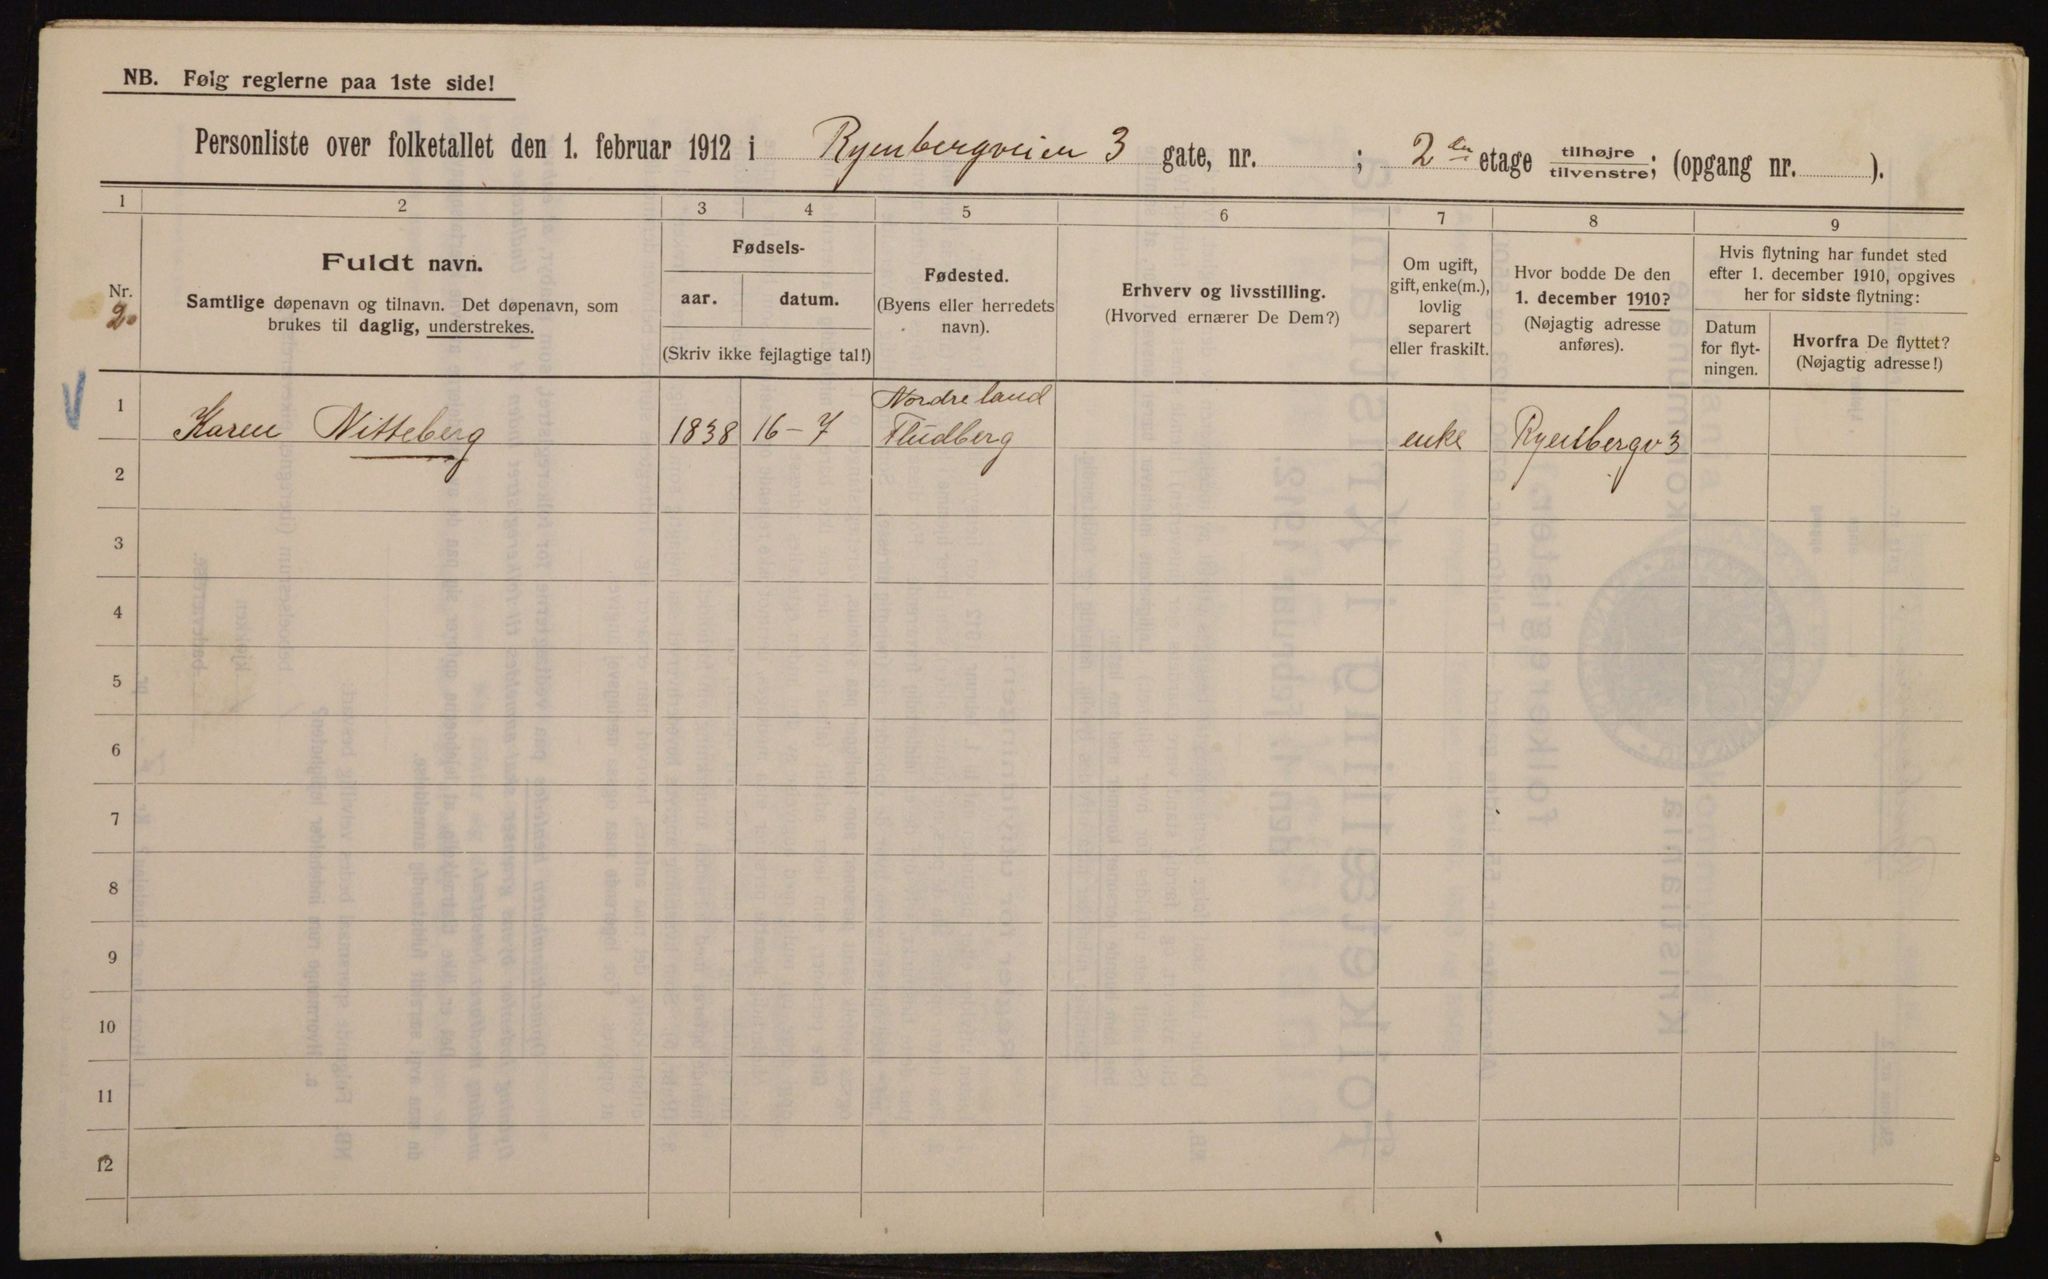 NB. Følg reglerne paa 1ste side!
Personliste over folketallet den 1. februar 1912 i Ryenbergveien 3 gate, nr. ; 2den etage tilhøjre tilvenstre; (opgang nr. ).
1 2 3 4 5 6 7 8 9
Nr.
2.
Fuldt navn.
Samtlige døpenavn og tilnavn. Det døpenavn, som
brukes til daglig, understrekes.
Fødsels-
aar. datum.
(Skriv ikke fejlagtige tal!)
Fødested.
(Byens eller herredets
navn).
Erhverv og livsstilling.
(Hvorved ernærer De Dem?)
Om ugift,
gift, enke(m.),
lovlig
separert
eller fraskilt.
Hvor bodde De den
1. december 1910?
(Nøjagtig adresse
anføres).
Hvis flytning har fundet sted
efter 1. december 1910, opgives
her for sidste flytning:
Datum
for flyt-
ningen.
Hvorfra De flyttet?
(Nøjagtig adresse!)
Nordre land
1 Karen Nitteberg 1838 16-7 Fludberg enke Ryenbergv 3
2
3
4
5
6
7
8
9
10
11
12